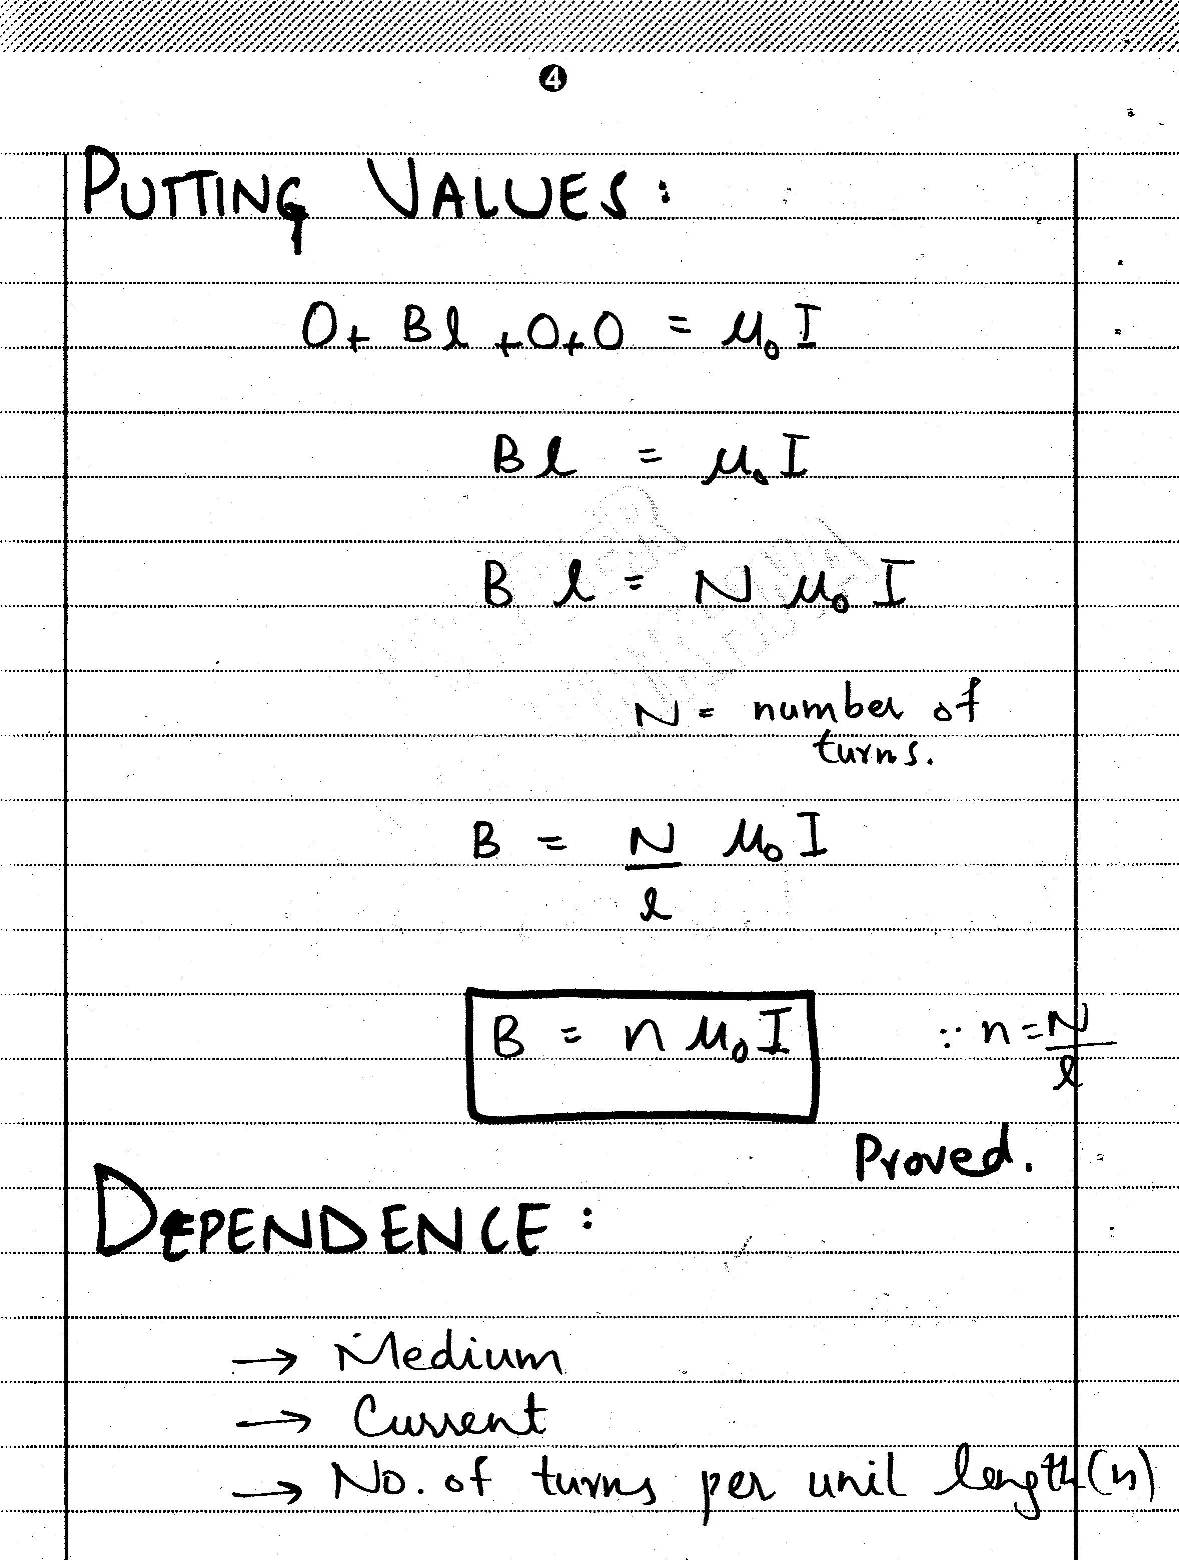 4
PUTTING VALUES:
0+ Bl +0+0 = μ₀I
Bl = μ₀I
B l = N μ₀ I
N = number of
turns.
B = N/l μ₀ I
B = n μ₀ I ∵ n = N/l
Proved.
DEPENDENCE:
→ Medium
→ Current
→ No. of turns per unit length (n)